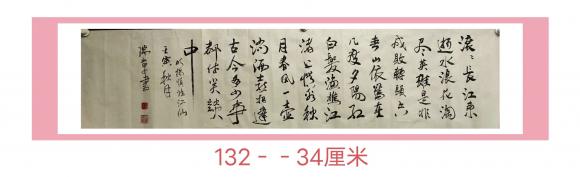 滚滚长江东
逝水浪花淘
尽英雄是非
成败转头空
青山依旧在
几度夕阳红
白发渔樵江
渚上惯看秋
月春风一壶
浊酒喜相逢
古今多少事
都付笑谈
中
明杨慎临江仙
壬寅秋月
132--34厘米